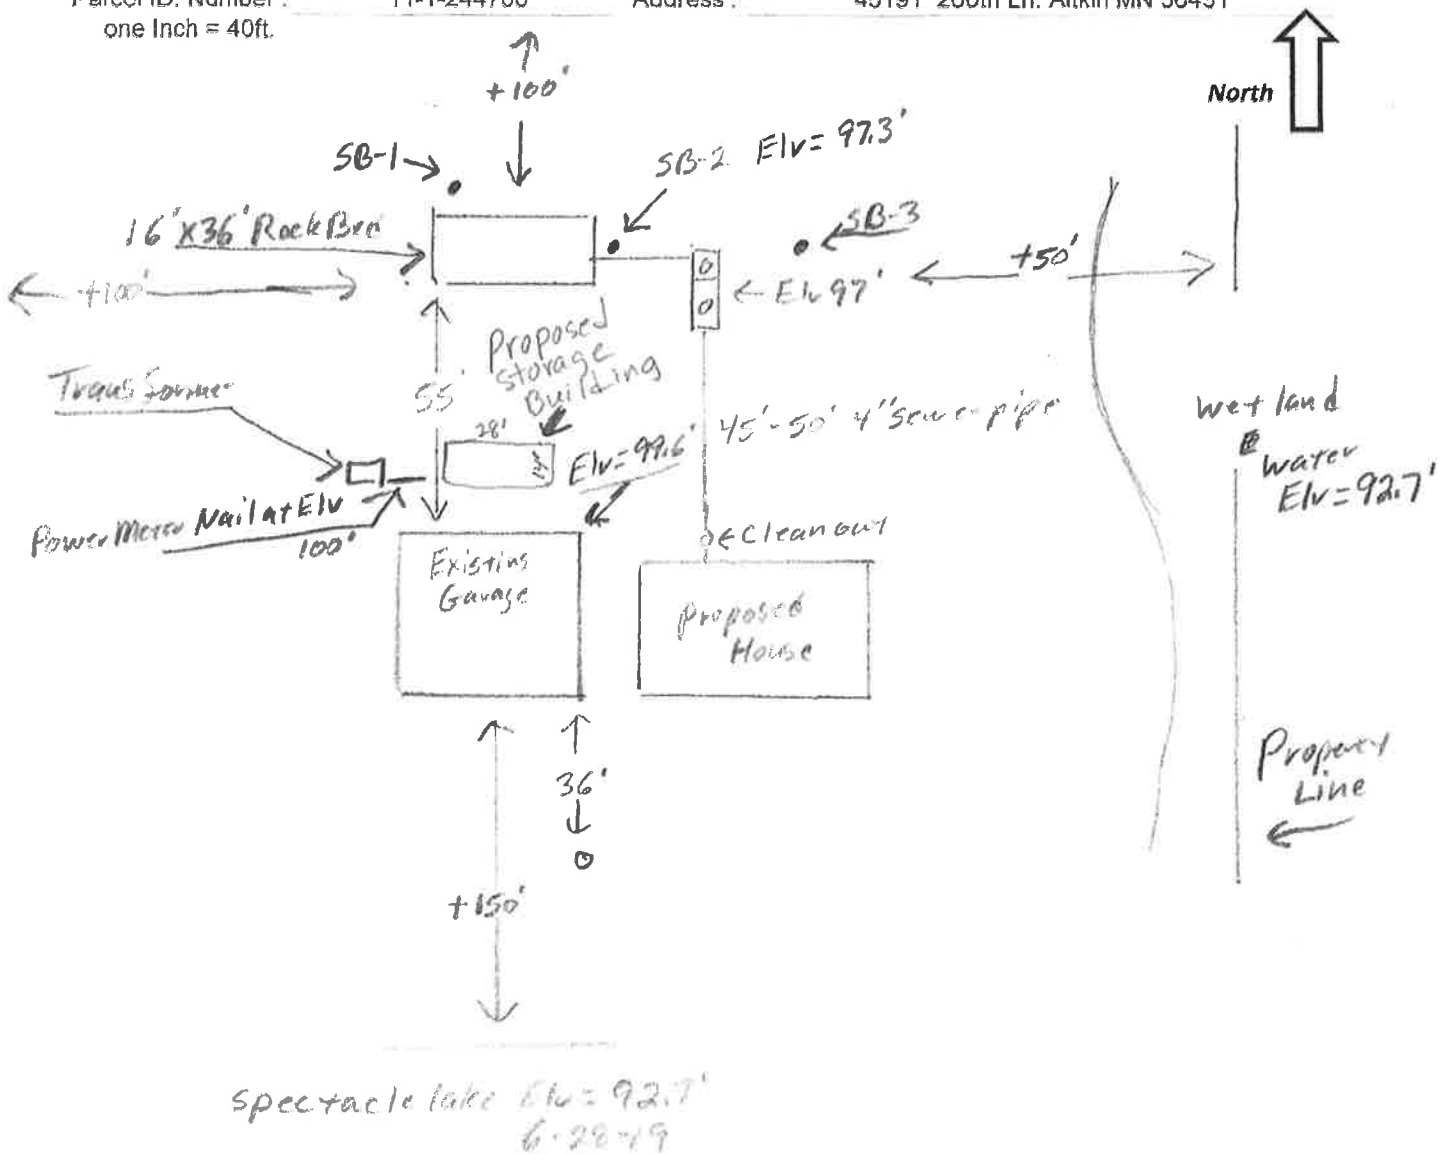 Parcel ID. Number : 11-1-244700 Address : 45191 260th Ln. Aitkin MN 56431
one Inch = 40ft.
North
+100'
SB-1
SB-2 Elv= 97.3'
16'x36' Rock Bed
SB-3
+100'
+50'
Elv 97'
Proposed
Storage
Building
55'
28'
14'
Transformer
45'-50' 4" sewer pipe
Elv=99.6'
Wetland
water
Elv=92.7'
Power Meter Nail at Elv
100'
Cleanout
Existing
Garage
Proposed
House
36'
Property
Line
+150'
Spectacle lake Elv= 92.7'
6-28-19